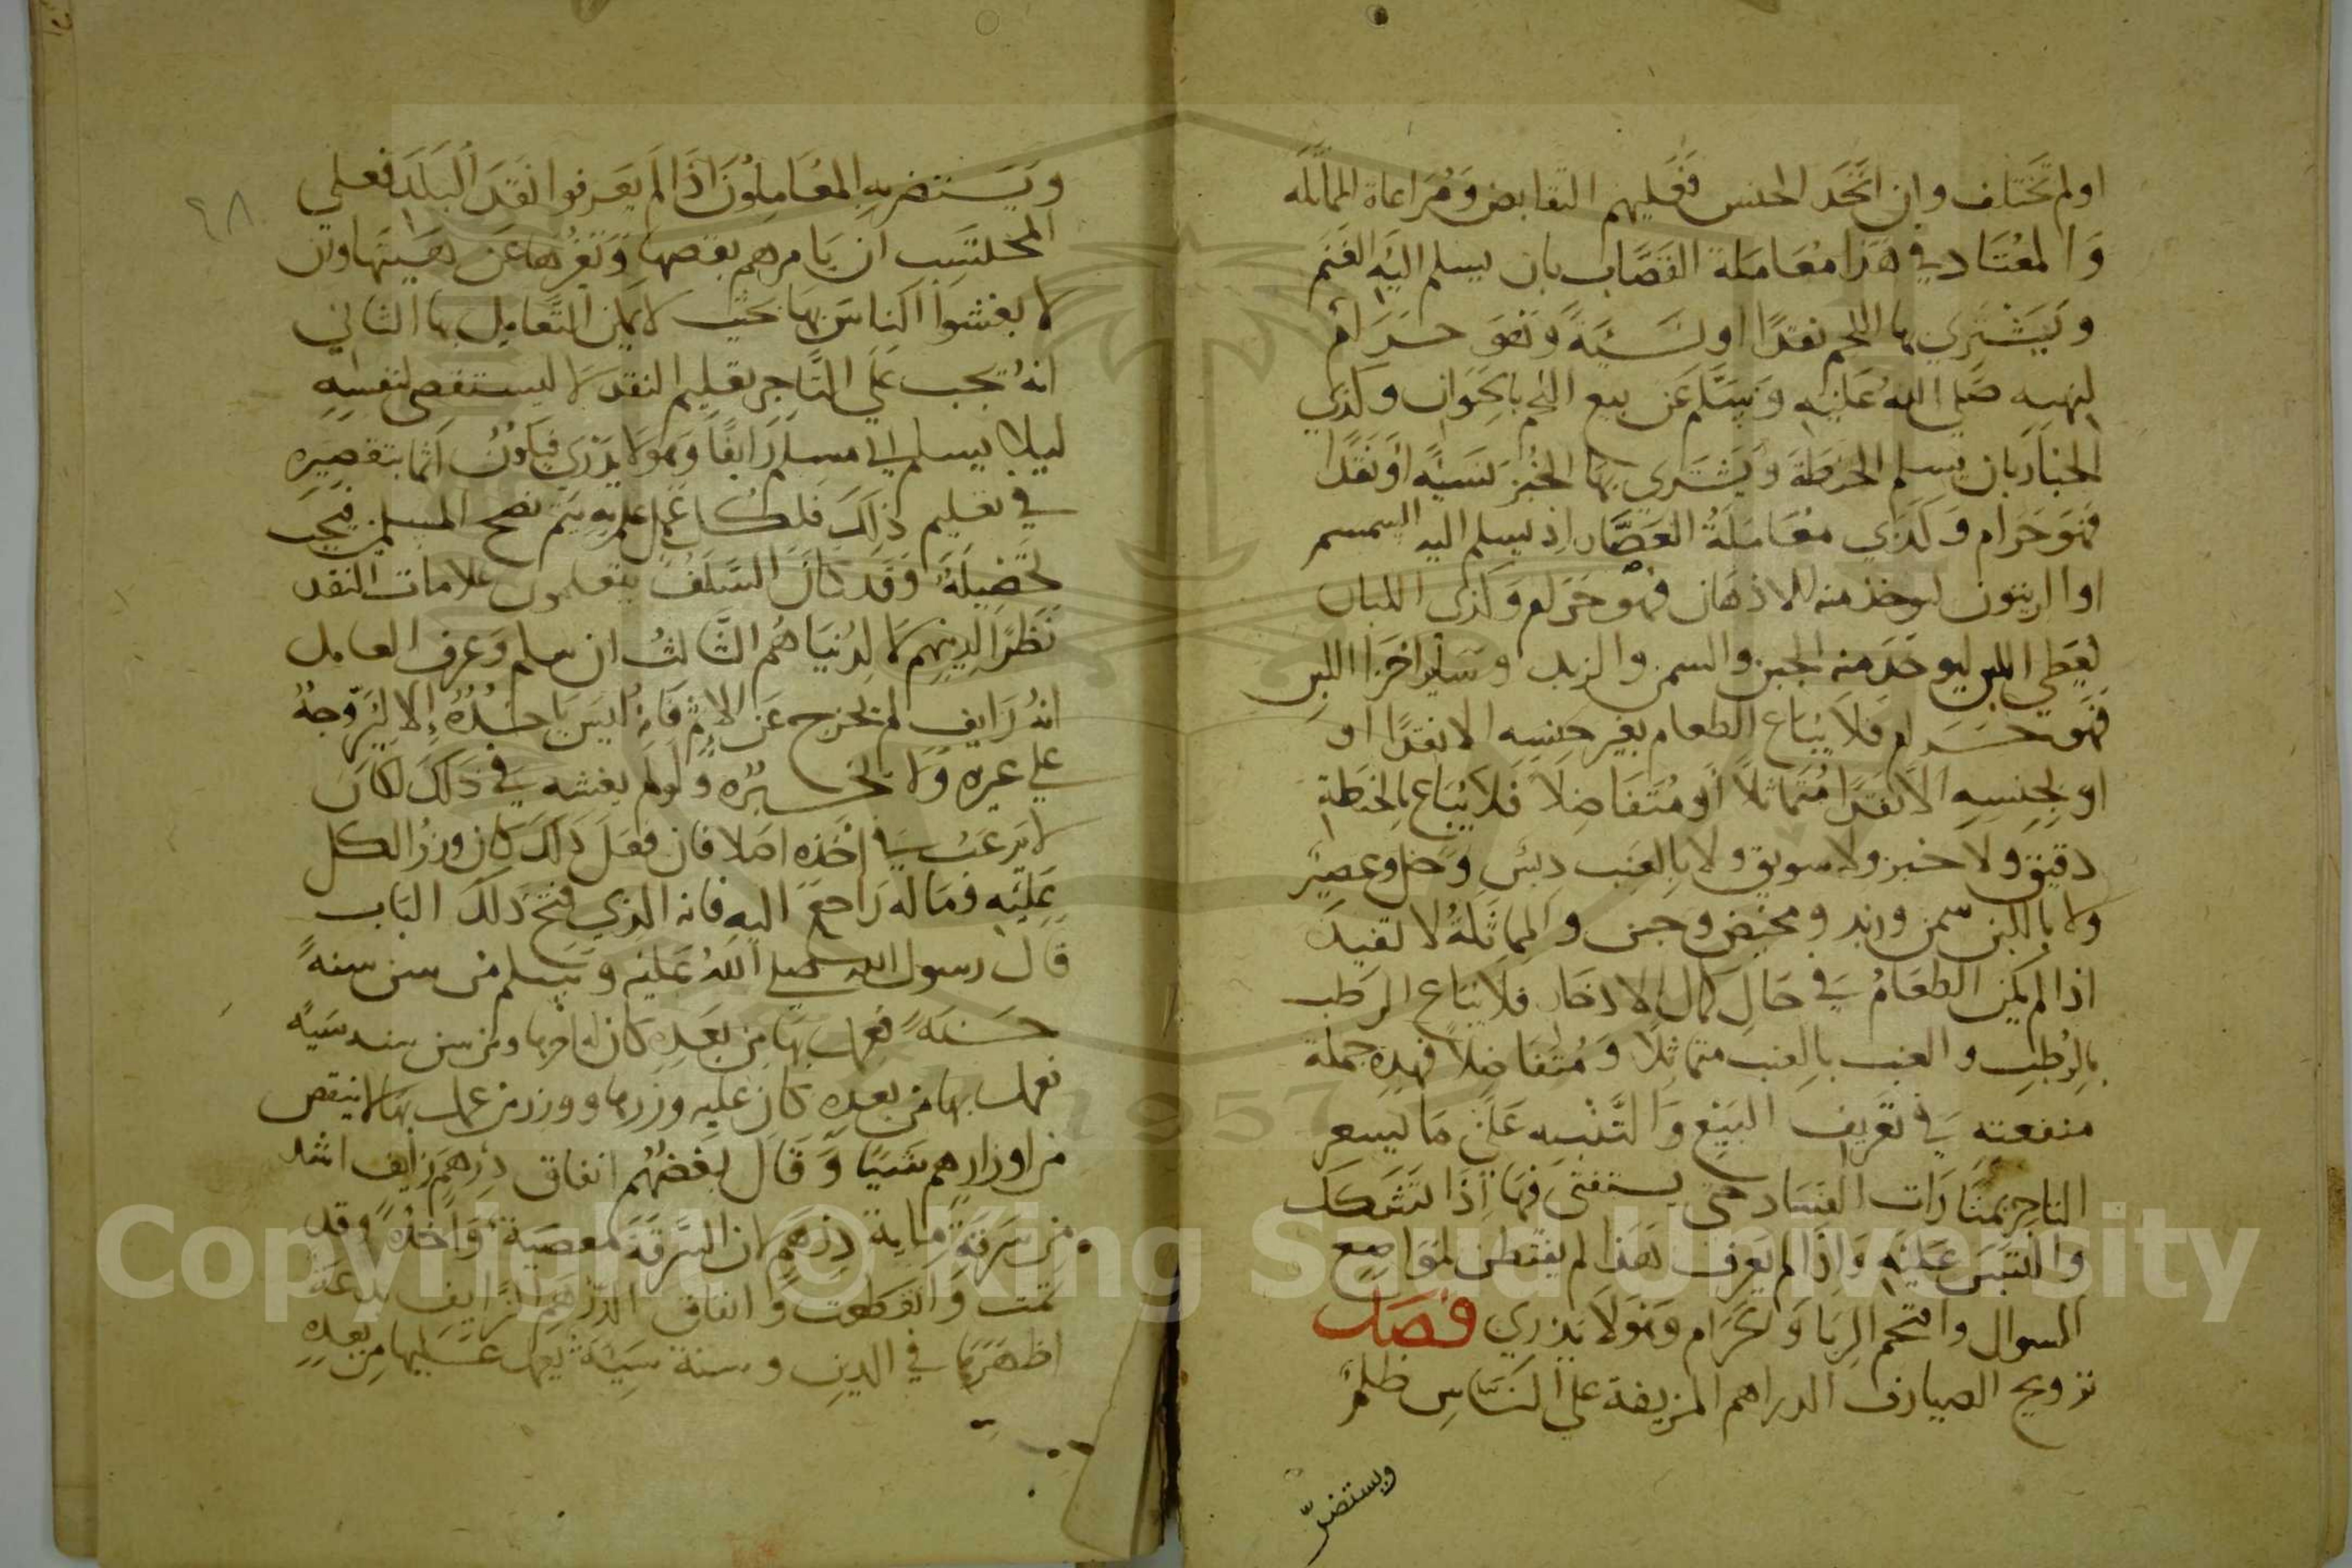 اولم تختلف وان اتحد الجنس فعليهم التقابض ومراعاة المماثله
والمعتاد في هذا معاملة القصاب بان يسلم اليه الغنم
ويشتري بها اللحم نقدا او نسية وهو حرام
لنهيه صلى الله عليه وسلم عن بيع اللحم بالحيوان وكذي
الخباز بان يسلم الحنطة ويشتري بها الخبز نسية او نقدا
فهو حرام وكذي معاملة العصار اذ يسلم اليه السمسم
او الزيتون ليوخذ منه الادهان فهو حرام وكذى اللبان
يعطي اللبن ليوخذ منه الجبن والسمن والزبد وساير اجزا اللبن
فهو حرام فلا يباع الطعام بغير جنسه الا نقدا او
او بجنسه الا نقدا متماثلا او متفاضلا فلا يباع بالحنطة
دقيق ولا خبز ولا سويق ولا بالعنب دبس وخل وعصير
ولا باللبن سمن وزبد ومخيض وجبن والمماثلة لا تفيد
اذا لم يكن الطعام في حال كمال الادخار فلا يباع الرطب
بالرطب والعنب بالعنب متماثلا ومتفاضلا فهذه جملة
منفعته في تعريف البيع والتنبيه على ما يسعر
التاجر بمثارات الفساد حتى يستفتي فيها اذا تشكك
والتبس عليه واذا لم يعرف هذا لم يفتطن لمواضع
السوال واقتحم الربا والحرام وهو لا يدري فصل
ترويج الصيارف الدراهم المزيفة على الناس ظلم
ويستضر
٩٨
ويستضر به المعاملون اذا لم يعرفوا نقد البلد فعلي
المحتسب ان يامرهم بقصها وتغيرها عن هيئتها وان
لا يغشوا الناس بها بحيث لا يمكن التعامل بها الثاني
انه يجب على التاجر تعليم النقد لا ليستقصي لنفسه
ليلا يسلم الى مسلم زايفا وهو لا يدري فيكون اثما بتقصيره
في تعليم ذلك فلكل عمل علم به يتم نصح المسلمين فيجب
تحصيله وقد كان السلف يتعلمون علامات النقد
نظرا لدينهم لا لدنياهم الثالث ان سلم وعرف العامل
انه زايف لم يخرج عن الاثم فانه ليس ياخذه الا ليروجه
علي غيره ولا يخبره ولو لم يغشه في ذلك لكان
لا يرغب في اخذه اصلا فان فعل ذلك كان وزر الكل
عليه وماله راجع اليه فانه الذي فتح ذلك الباب
قال رسول الله صلى الله عليه وسلم من سن سنة
حسنة فعمل بها من بعده كان له اجرها ومن سن سنه سية
فعمل بها من بعده كان عليه وزرها ووزر من عمل بها لا ينقص
من اوزارهم شيا وقال بعضهم انفاق درهم زايف اشد
من سرقة ماية درهم لان السرقة معصية واحدة وقد
تمت وانقطعت وانفاق الدرهم الزايف بدعة
اظهرها في الدين وسنة سية يعمل عليها من بعده
Copyright © King Saud University
1957